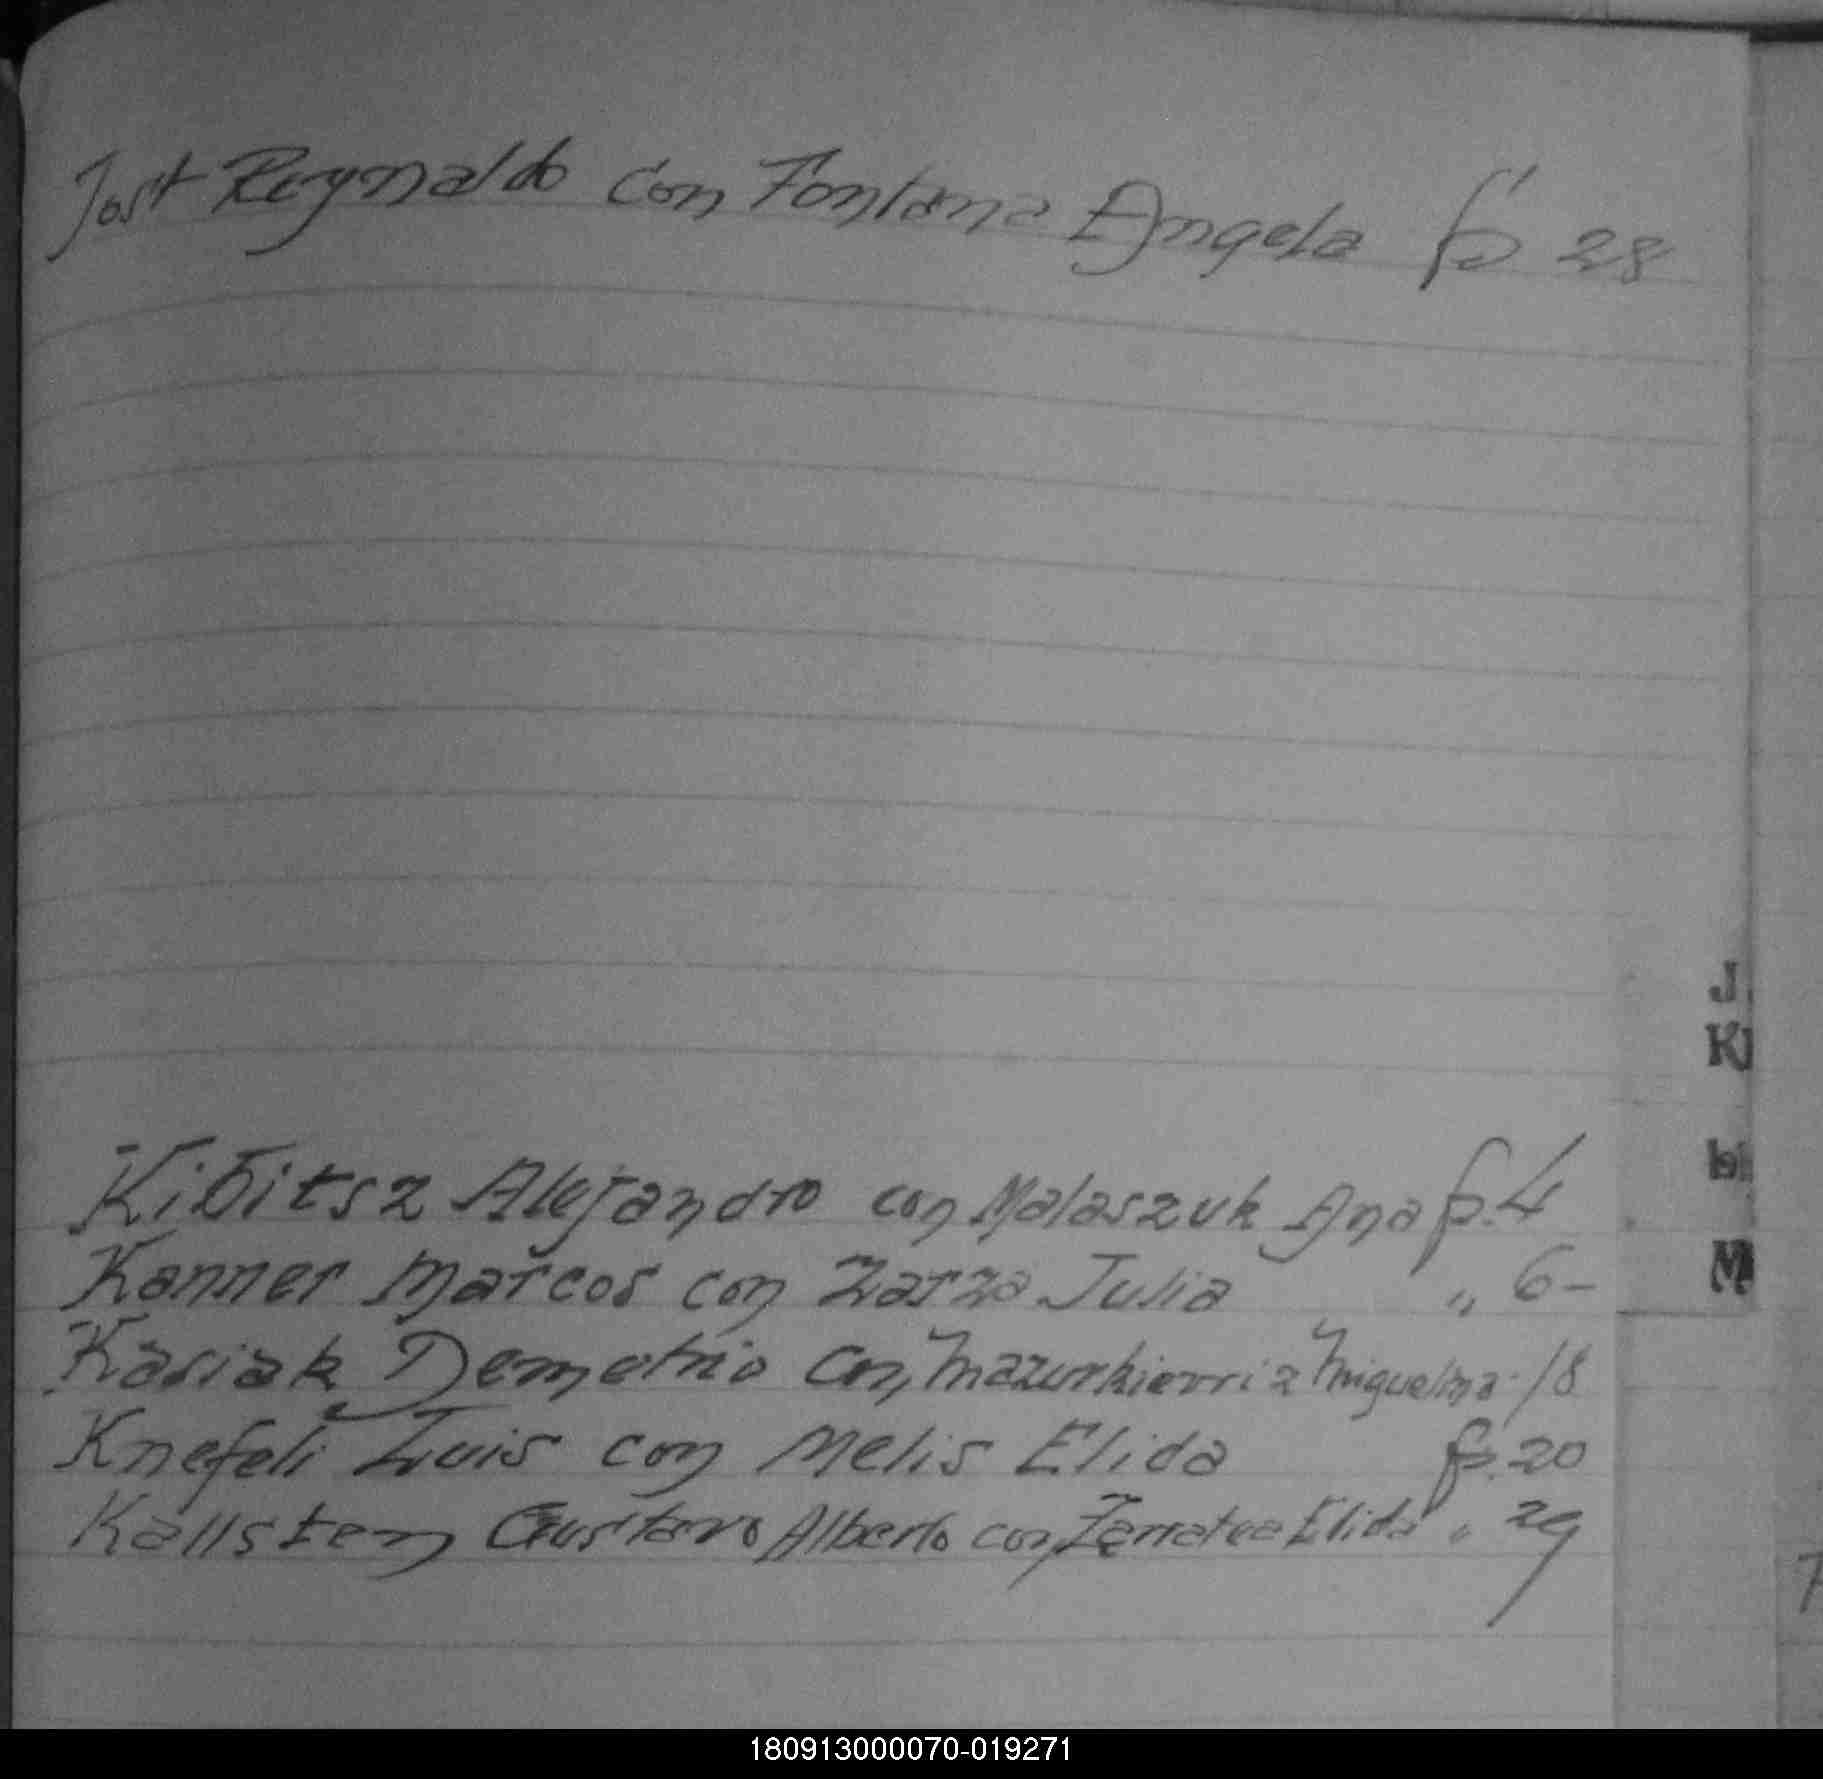 Jost Reynaldo con Fontana Angela fo 28
J
K
Kibitsz Alejandro con Malaszuk Ana fo. 4
Kanner Marcos con Zarza Julia " 6-
M
Kasiak Demetrio con Miguelina 18
Knefeli Luis con Melis Elida fo. 20
Kallsten Gustavo Alberto con Elida " 29
180913000070-019271